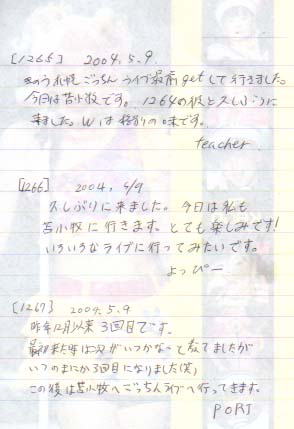 [1265] 2004.5.9.
きのう札幌ごっちんライブ最高getして行きました。
今日は苫小牧です。1264の彼と久しぶりに
来ました。Wは格別の味です。
teacher.
[1266] 2004, 5/9
久しぶりに来ました。今日は私も
苫小牧に行きます。とても楽しみです!
いろいろなライブに行ってみたいです。
よっぴー
[1267] 2004.5.9
昨年12月以来3回目です。
最初来た時は次がいつかな〜と思ってましたが
いつのまにか3回目になりました(笑)
この後は苫小牧へごっちんライブへ行ってきます。
PORT